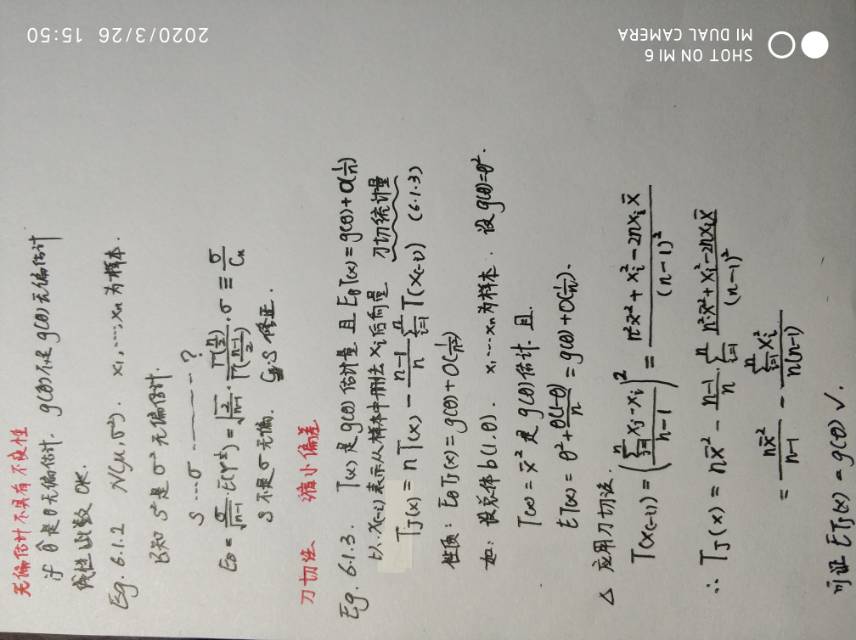 无偏估计不具有不变性
if θ̂ 是 θ 无偏估计. g(θ̂) 不是 g(θ) 无偏估计
线性函数 OK.
Eg. 6.1.2 N(μ, σ²). x₁, ⋯, xₙ 为样本.
已知 S² 是 σ² 无偏估计.
S ⋯ σ ⋯ ?
E₀ = σ/√(n-1) · E(Y^½) = √(2/(n-1)) · Γ(n/2)/Γ((n-1)/2) · σ ≡ σ/Cₙ
S 不是 σ 无偏. Cₙ·S 修正.
刀切法 缩小偏差
Eg. 6.1.3. T(x) 是 g(θ) 估计量 且 E_θ T(x) = g(θ) + O(1/n)
以 x(-i) 表示从样本中删去 xᵢ 后向量 刀切统计量
T_J(x) = nT(x) - (n-1)/n Σⁿᵢ₌₁ T(x(-i)) (6.1.3)
性质: E_θ T_J(x) = g(θ) + O(1/n²)
如: 设总体 b(1, θ). x₁ ⋯ xₙ 为样本. 设 g(θ) = θ².
T(x) = x̄² 是 g(θ) 估计. 且.
ET(x) = θ² + θ(1-θ)/n = g(θ) + O(1/n).
△ 应用刀切法.
T(x(-i)) = ((Σⁿⱼ₌₁ xⱼ - xᵢ)/(n-1))² = (n²x̄² + xᵢ² - 2nxᵢx̄)/(n-1)²
∴ T_J(x) = nx̄² - (n-1)/n · Σⁿᵢ₌₁ (n²x̄² + xᵢ² - 2nxᵢx̄)/(n-1)²
= nx̄²/(n-1) - Σⁿᵢ₌₁ xᵢ²/(n(n-1))
可证 ET_J(x) = g(θ) √.
SHOT ON MI 6
MI DUAL CAMERA
2020/3/26 15:50